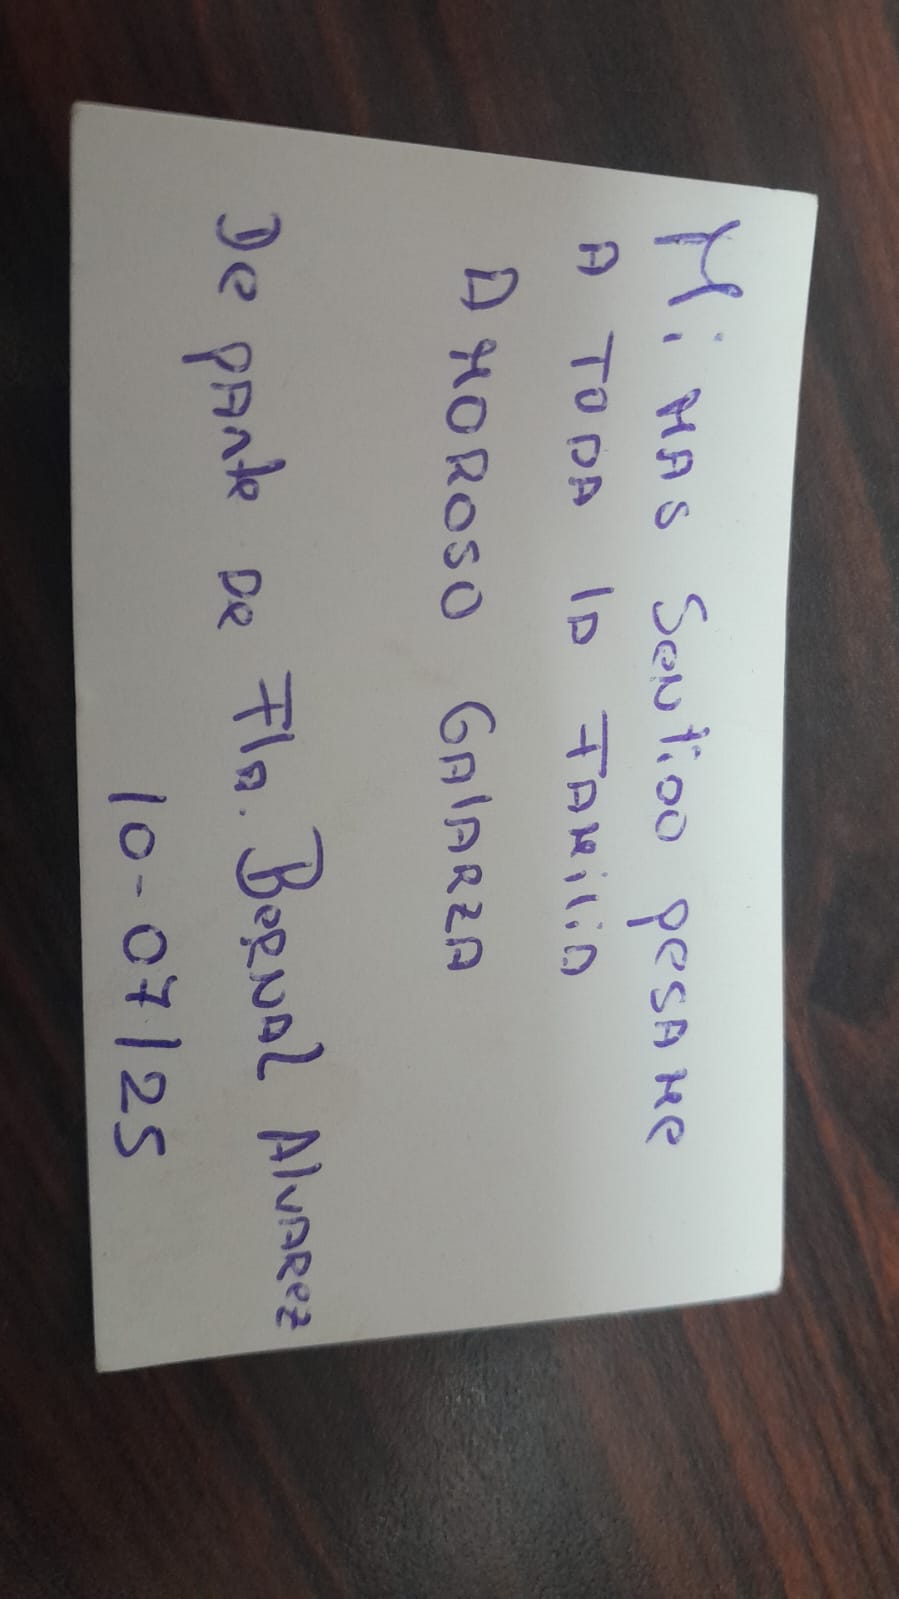 Mi MAS SenTiDO pesAMe
A TODA lA FAMiliA
AMOROSO GAlARZA
De pArte De Flia. BeRNAl AlvARez
10-07/25